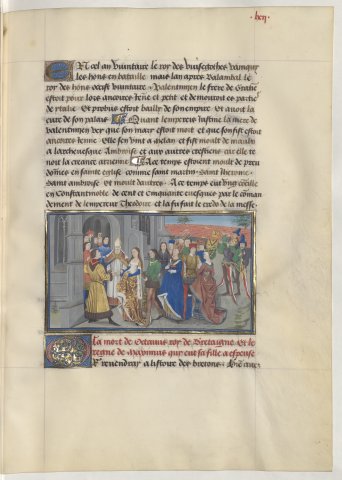 En cel an vuintaire le roy des vuisegothes vainqui
les hons en bataille mais lan apres Balambal le
roy des hons occist vuintaire · Valentinien le frere de Gratien
estoit pour lors ancores Jene et petit et demouroit es parties
de ytalie Et probus estoit bailly de son empire Et avoit la
cure de son palais Quant lempereis Justine la mere de
valentinien vey que son mary estoit mort et que son filz estoit
ancores Jenne · Elle sen vint a melan et fist moult de maulx
a larchevesque Ambroise et aux autres crestiens car elle te
noit la creance arriene Ace temps estoient moult de preu
domes en sainte eglise comme saint martin · Saint Iherome ·
Saint ambrose Et moult dautres · Ace temps eut ung concille
en Constantinoble de cent et Cinquante evesques par le coman
dement de lempereur Theodore et la fu fait le credo de la messe ·
La mort de Octavus roy de Bretaigne · Et le
regne de Maximus qui eut sa fille a espouse
Je revendray a listoire des bretons ·